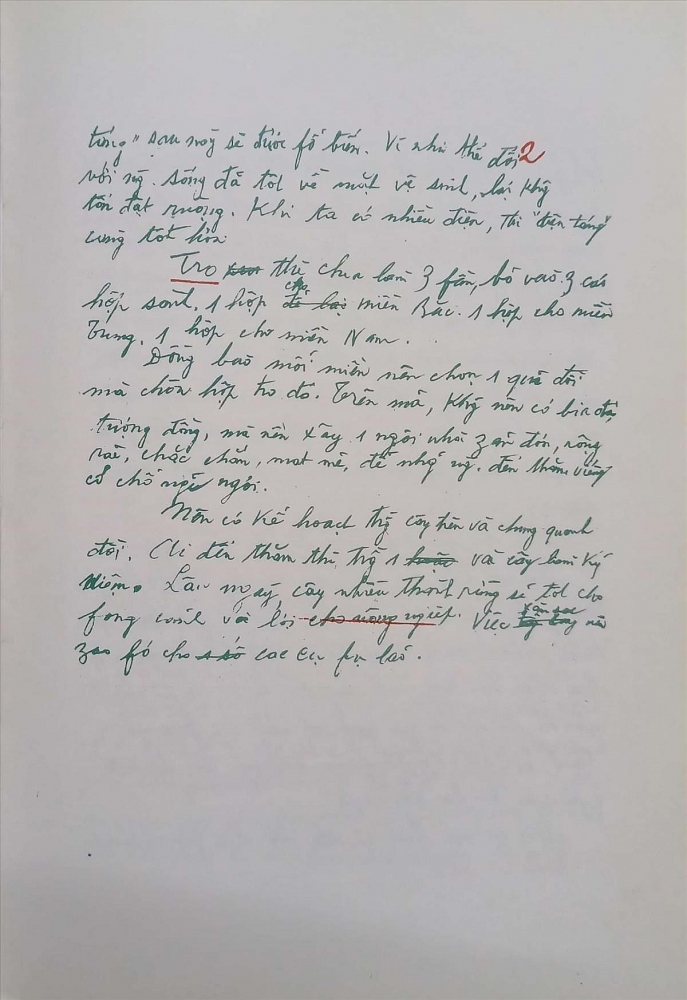 táng" sau này sẽ được fổ biến. Vì như thế đối 2
với ng. sống đã tốt về mặt vệ sinh, lại khg
tốn đất ruộng. Khi ta có nhiều điện, thì "điện táng"
càng tốt hơn
Tro thì chia làm 3 fần, bỏ vào 3 cái
hộp sành. 1 hộp cho miền Bắc. 1 hộp cho miền
Trung. 1 hộp cho miền Nam.
Đồng bào mỗi miền nên chọn 1 quả đồi
mà chôn hộp tro đó. Trên mả, khg nên có bia đá,
tượng đồng, mà nên xây 1 ngôi nhà zản đơn, rộng
rãi, chắc chắn, mát mẻ, để nhg ng. đến thăm viếng
có chỗ nghỉ ngơi.
Nên có kế hoạch trg cây trên và chung quanh
đồi. Ai đến thăm thì trg 1 vài cây làm kỷ
niệm. Lâu ngày, cây nhiều thành rừng sẽ tốt cho
fong cảnh và lợi cho nông ngiệp. Việc săn sóc nên
zao fó cho các cụ fụ lão.